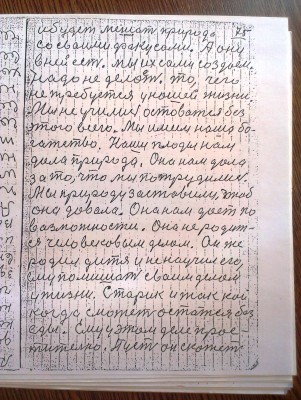 75
и будет мешать природа
со своими фокусами. А они
в ней есть. Мы их сами создаём.
надо не делать то, чего
не требуется у нашей жизни
Мы не учимся остоватся без
этого всего. Мы имеем наше бо-
гатство. Наши плоды нам
дала природа. Она нам дала
за то, что мы потрудились.
Мы природу заставили, чтоб
она давала. Она нам дает по
возможности. Она не родит-
ся человековым делом. Он же
родил дитя и не научил его
ему помишать своим делом
у жизни. Старик и то как кой
когда сможет остатся без
еды. Ему этом деле прос-
тительно. Пусть он скажет